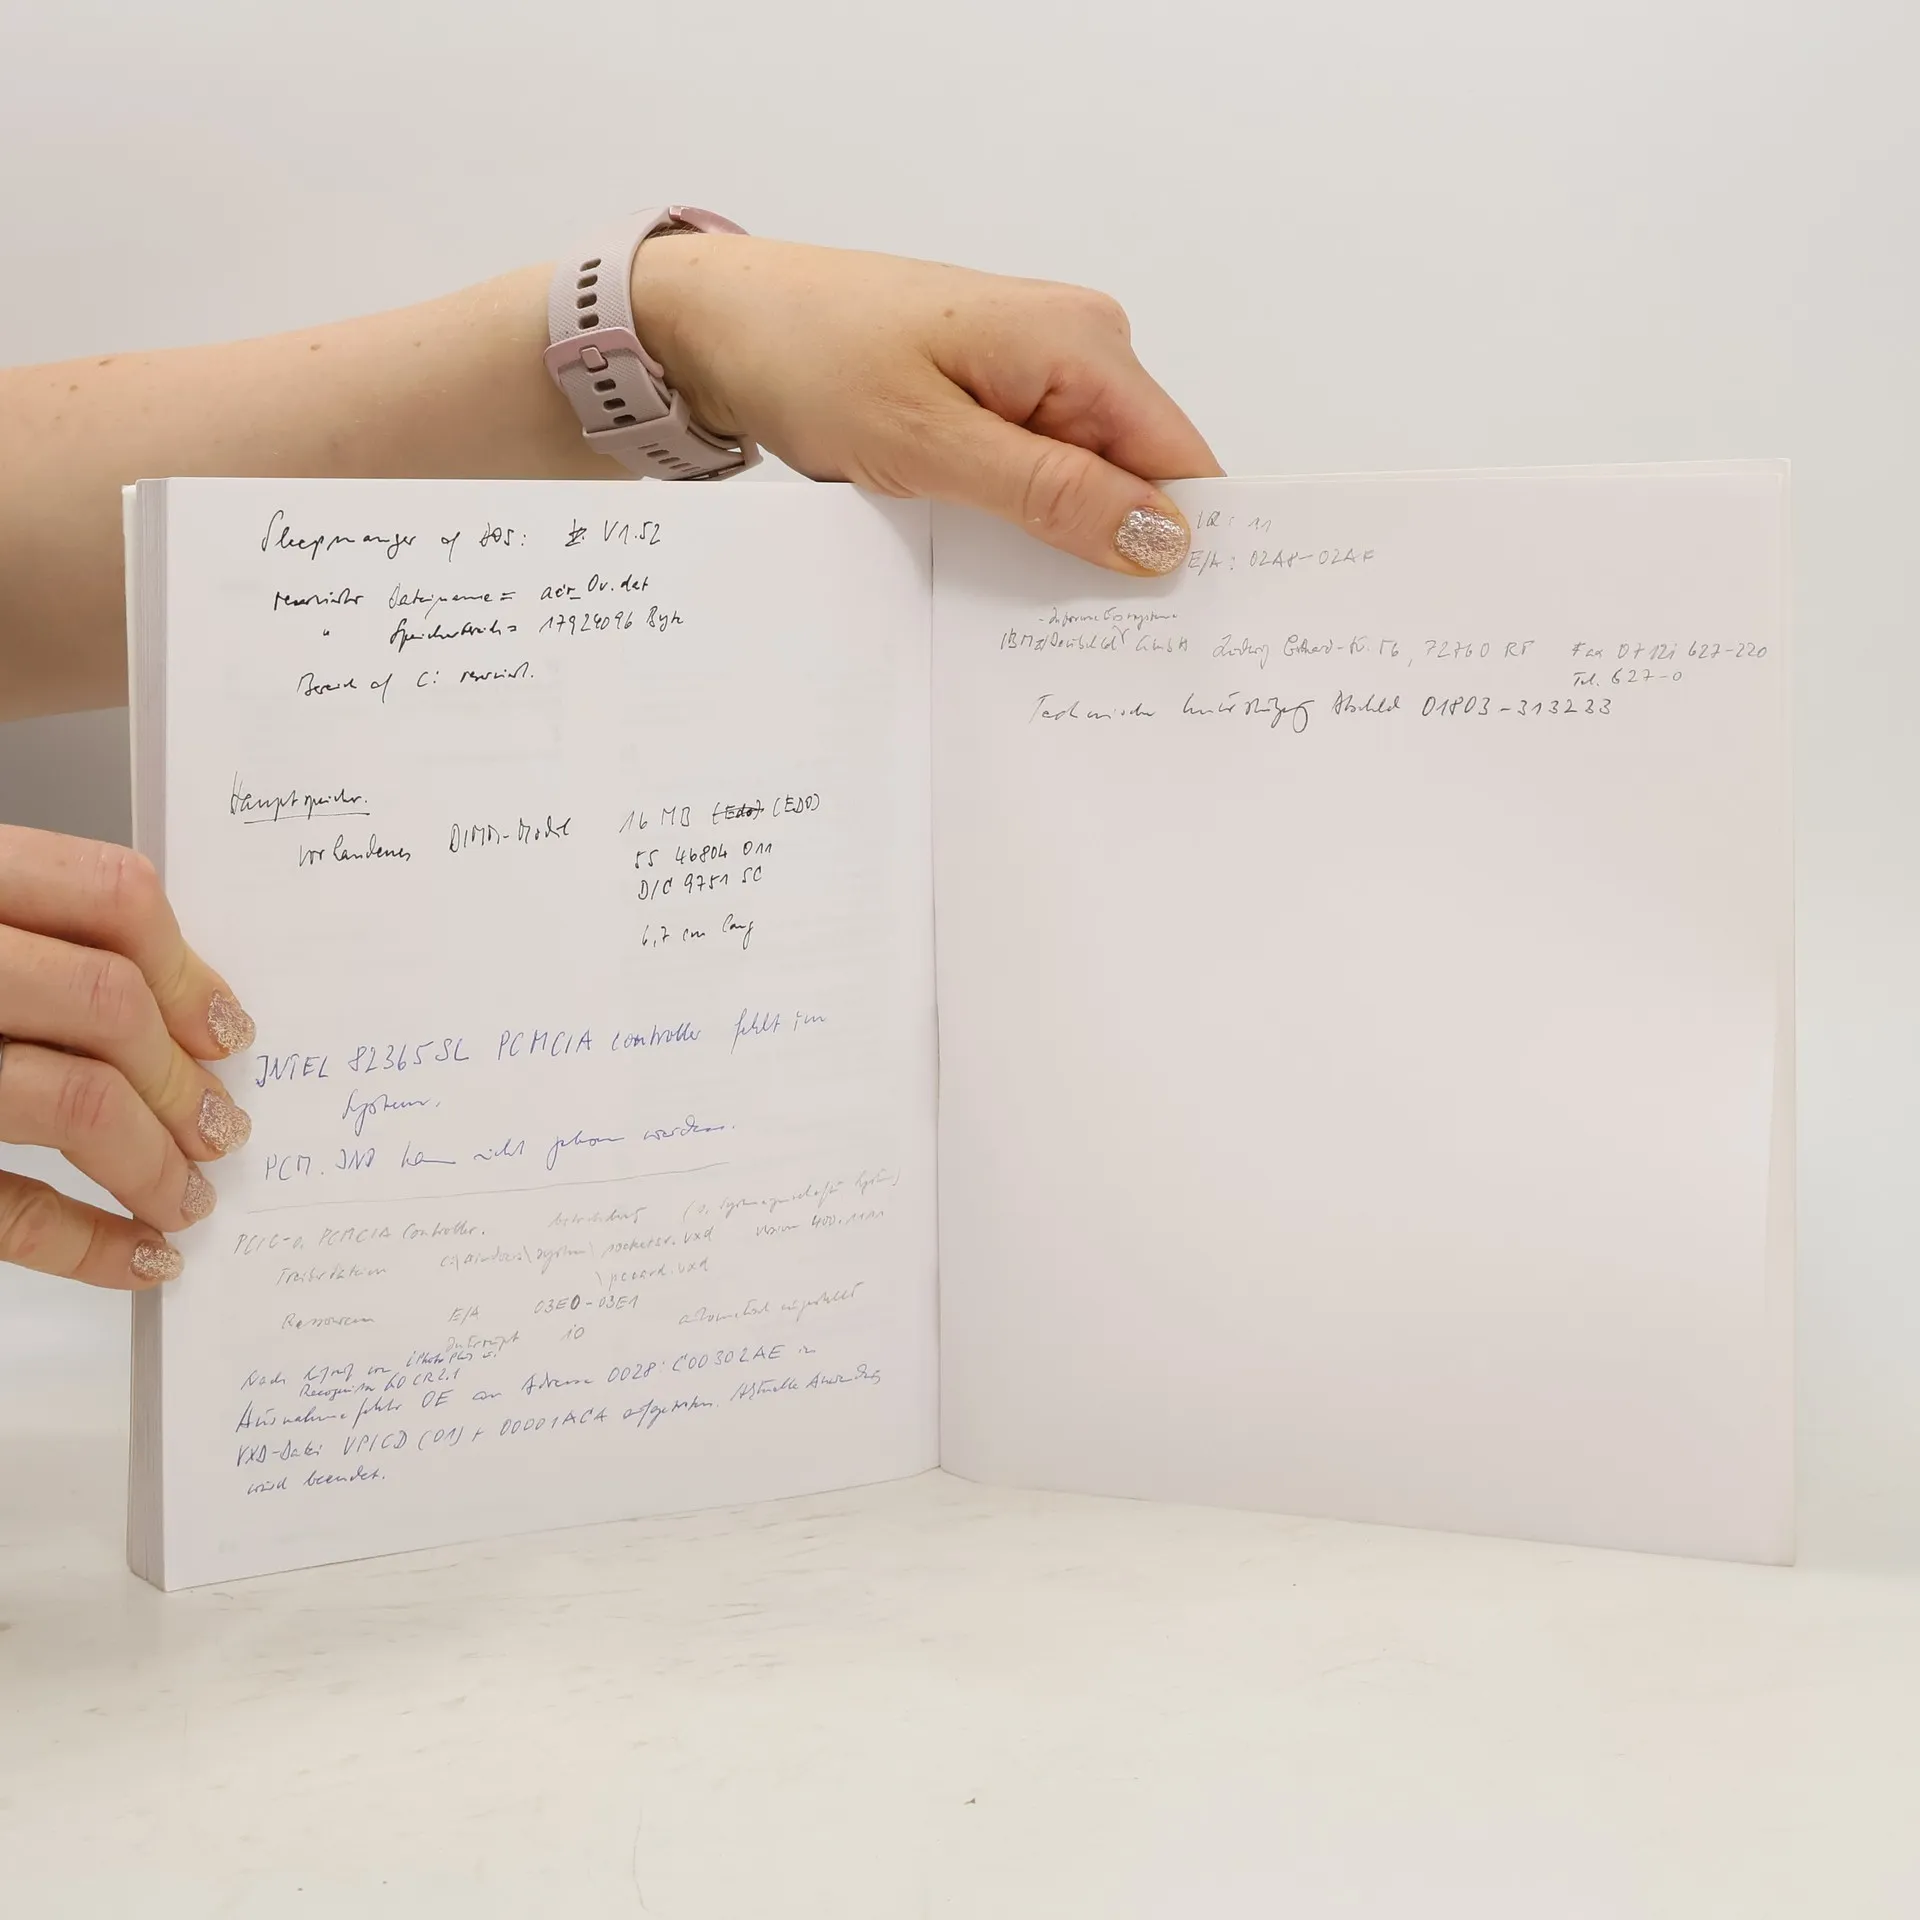 Sleepmanger of DOS: V1.52
reservierter Dateiname = acr_0v.dat
" Speicherbereich = 17924096 Byte
Bereich of C: reserviert.
Hauptspeicher.
vorhandenes DIMM-Modul 16 MB (Edo) (EDO)
55 46804 011
D/C 9751 SC
6,7 cm lang
INTEL 82365SL PCMCIA controller fehlt im
System.
PCM.IND kann nicht geladen werden.
PCIC-o. PCMCIA Controller. (s. Systemeigenschaften System)
Treiberdateien c:\windows\system\ socketsr.vxd version 400.1111
\pccard.vxd
Ressourcen E/A 03E0-03E1
Interrupt 10 automatisch eingestellt
Nach von iPhoto Plus u.
Recognita GO CR2.1
Ausnahmefehler OE an Adresse 0028:C00302AE in
VXD-Datei VPICD (01) + 00001ACA aufgetreten. Aktuelle Anwendung
wird beendet.
11
E/A: 02A8-02AF
-Informationssysteme
IBM Deutschland GmbH Ludwig Erhard-Str. 56, 72760 RT Fax 07121 627-220
Tel. 627-0
Technische Unterstützung 01803-313233